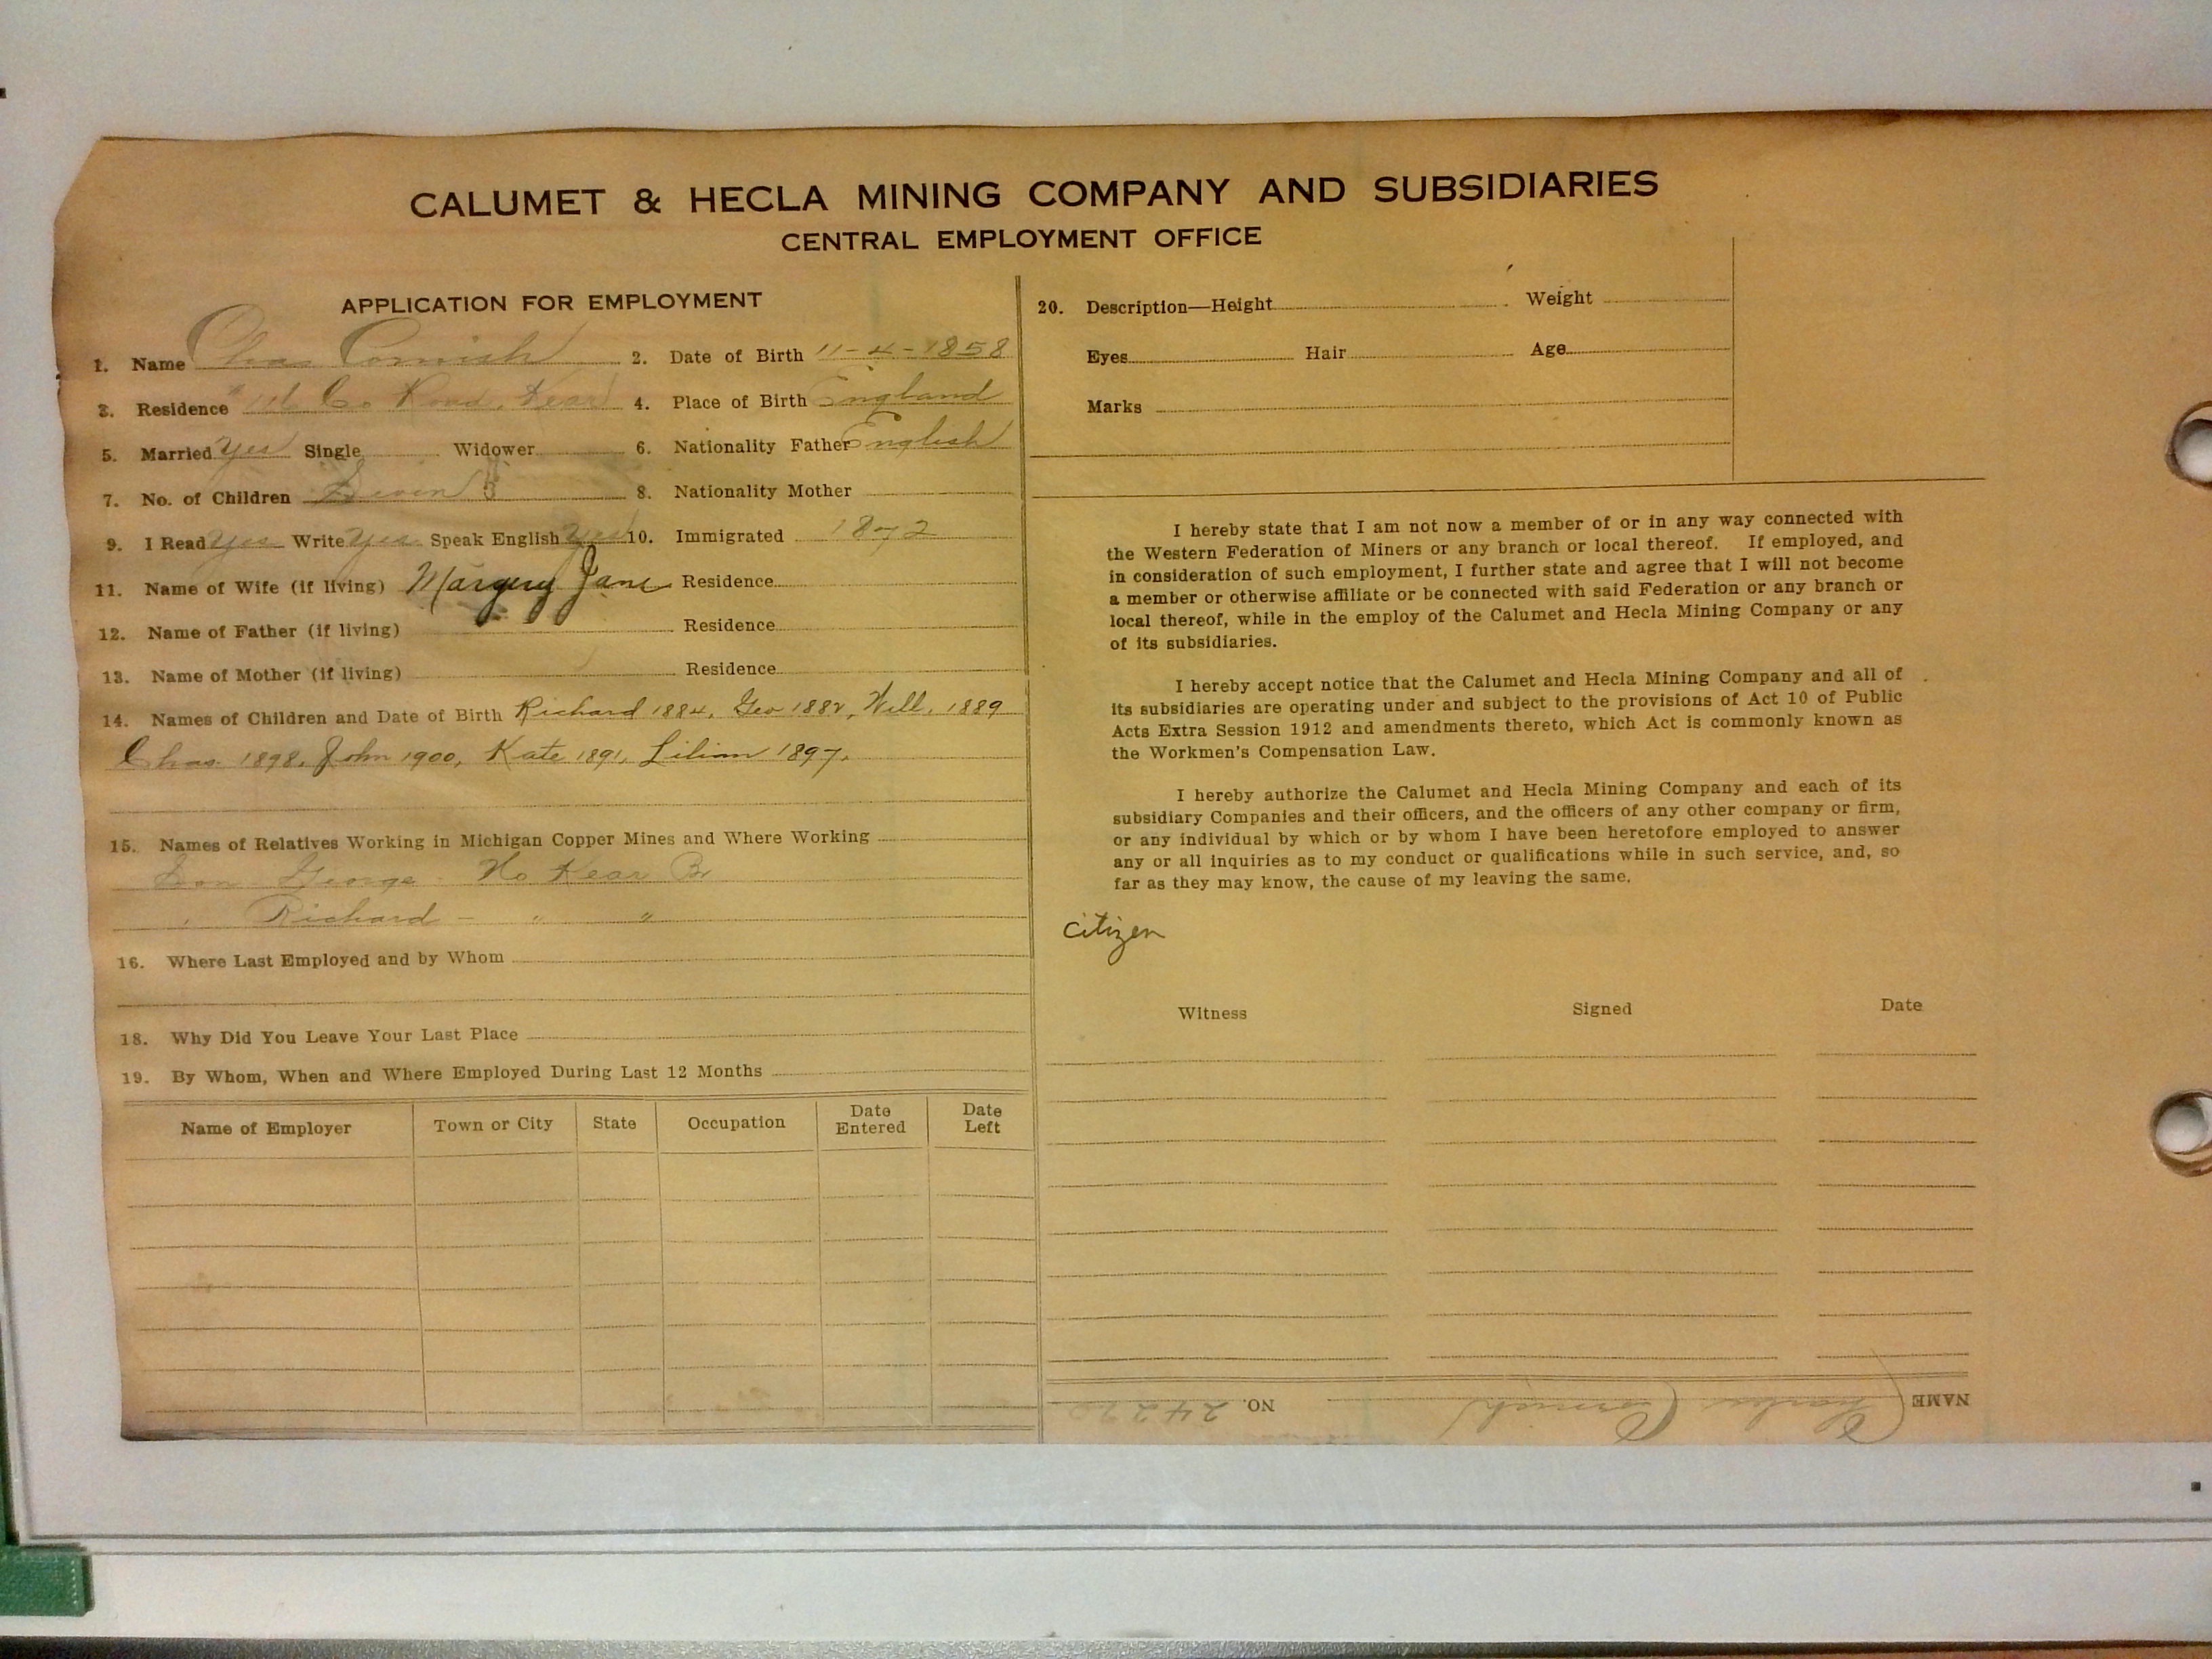 CALUMET & HECLA MINING COMPANY AND SUBSIDIARIES
CENTRAL EMPLOYMENT OFFICE
APPLICATION FOR EMPLOYMENT
1. Name Chas Cornish 2. Date of Birth 11-4-1858
3. Residence Co Road, Kear 4. Place of Birth England
5. Married Yes Single Widower 6. Nationality Father English
7. No. of Children Seven 8. Nationality Mother
9. I Read Yes Write Yes Speak English Yes 10. Immigrated 1872
11. Name of Wife (if living) Margery Jane Residence
12. Name of Father (if living) Residence
13. Name of Mother (if living) Residence
14. Names of Children and Date of Birth Richard 1884, Geo 1882, Will, 1889
Chas 1898, John 1900, Kate 1891, Lilian 1897.
15. Names of Relatives Working in Michigan Copper Mines and Where Working
Son George No Kear Br
" Richard - " "
16. Where Last Employed and by Whom
18. Why Did You Leave Your Last Place
19. By Whom, When and Where Employed During Last 12 Months
Name of Employer Town or City State Occupation Date Entered Date Left
20. Description—Height Weight
Eyes Hair Age
Marks
I hereby state that I am not now a member of or in any way connected with
the Western Federation of Miners or any branch or local thereof. If employed, and
in consideration of such employment, I further state and agree that I will not become
a member or otherwise affiliate or be connected with said Federation or any branch or
local thereof, while in the employ of the Calumet and Hecla Mining Company or any
of its subsidiaries.
I hereby accept notice that the Calumet and Hecla Mining Company and all of
its subsidiaries are operating under and subject to the provisions of Act 10 of Public
Acts Extra Session 1912 and amendments thereto, which Act is commonly known as
the Workmen's Compensation Law.
I hereby authorize the Calumet and Hecla Mining Company and each of its
subsidiary Companies and their officers, and the officers of any other company or firm,
or any individual by which or by whom I have been heretofore employed to answer
any or all inquiries as to my conduct or qualifications while in such service, and, so
far as they may know, the cause of my leaving the same.
citizen
Witness Signed Date
NAME Charles Cornish NO.